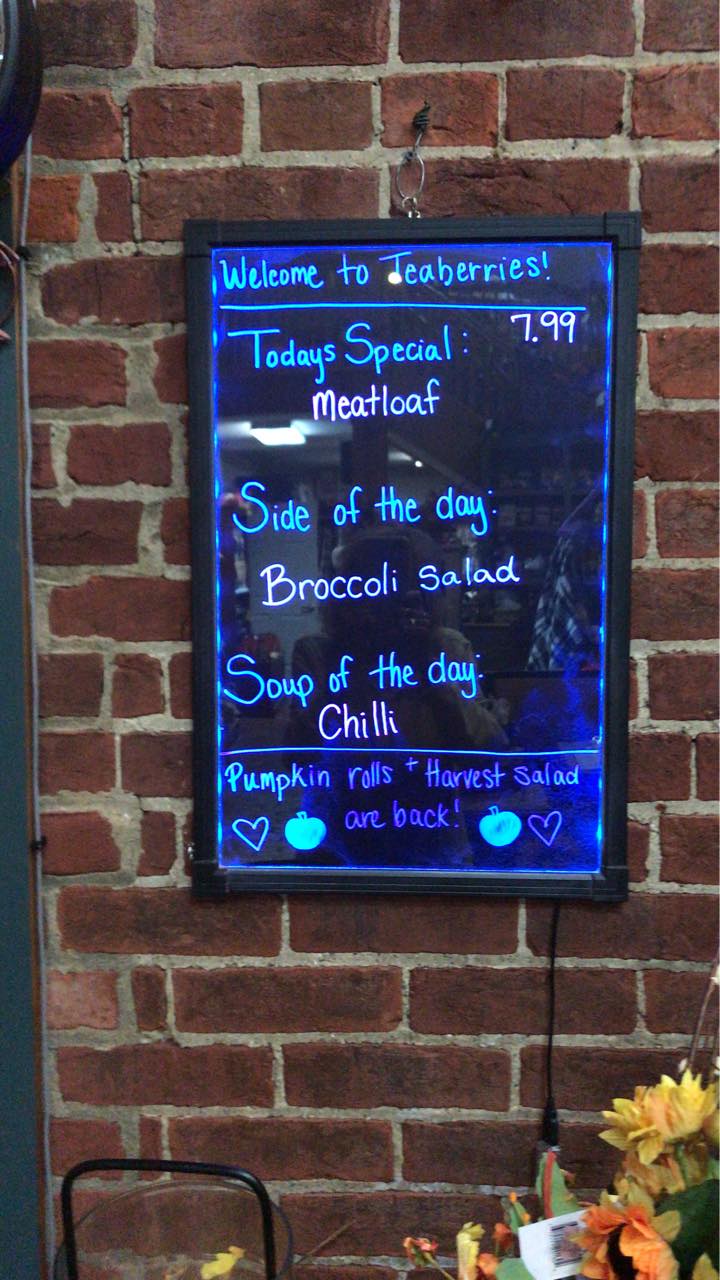 Welcome to Teaberries!
7.99
Todays Special:
Meatloaf
Side of the day:
Broccoli Salad
Soup of the day:
Chilli
Pumpkin rolls + Harvest Salad
are back!